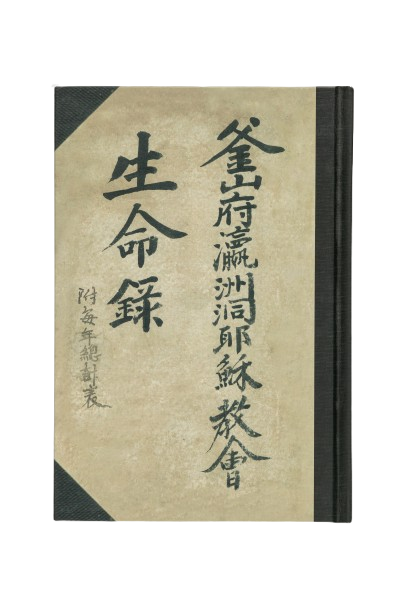 釜山府瀛洲洞耶穌教會
生命錄
附每年總計表